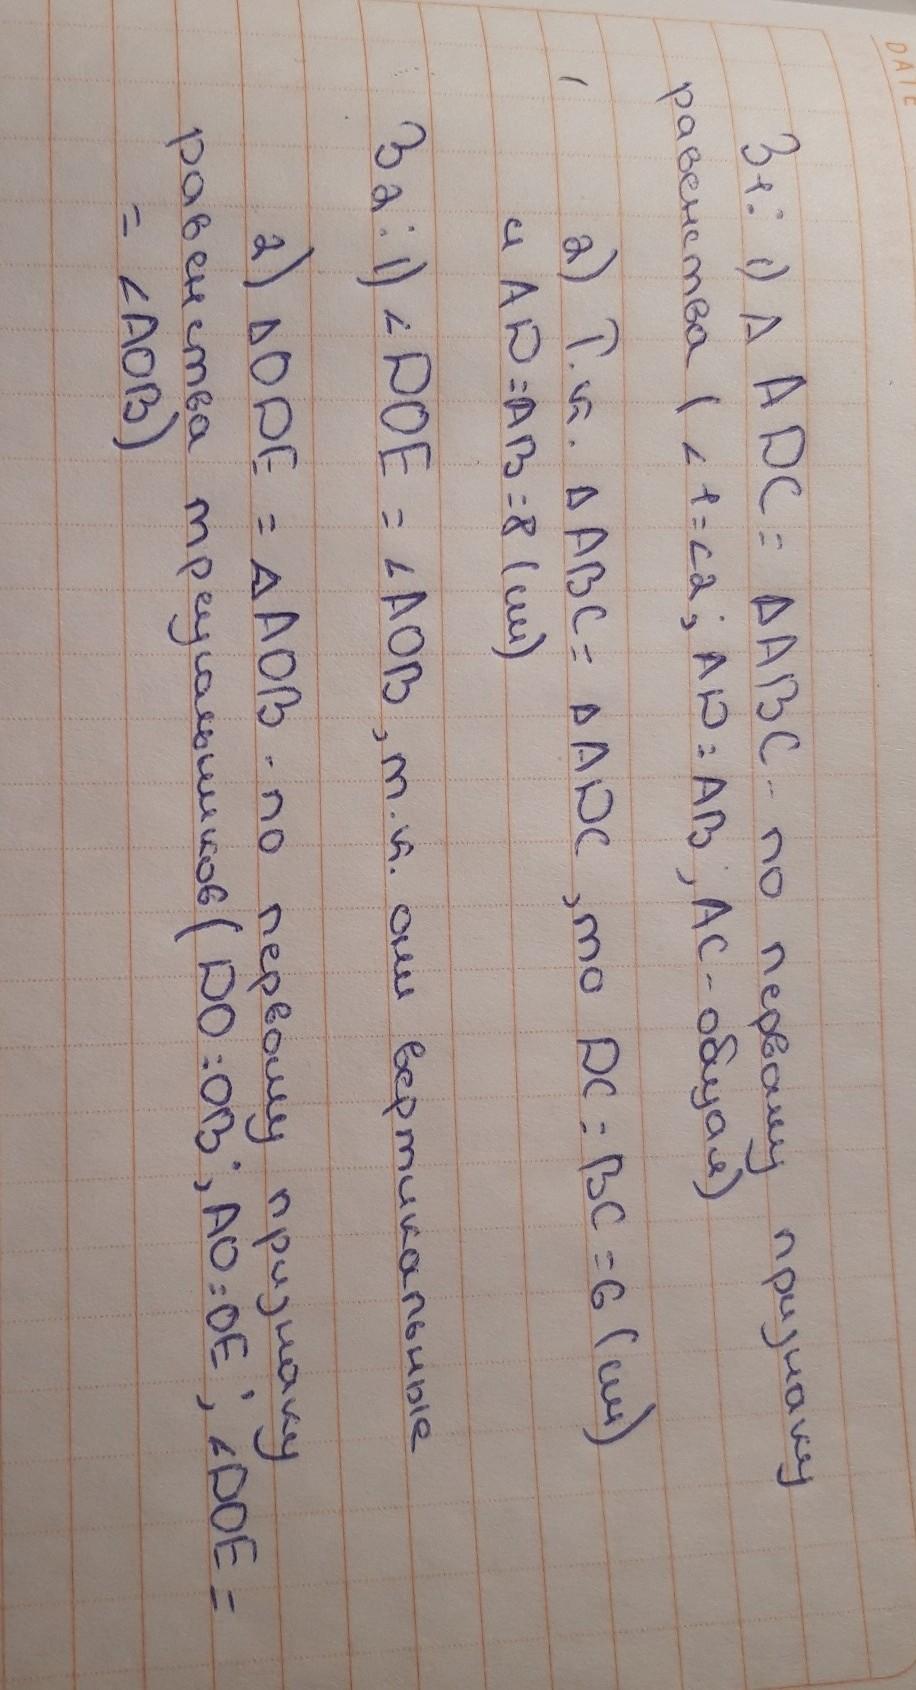 DATE
З1: 1) Δ ADC = ΔABC - по первому признаку
равенства ( ∠1=∠2; AD=AB; AC-общая)
2) Т.к. ΔABC = ΔADC, то DC = BC = 6 (см)
и AD=AB=8 (см)
З2: 1) ∠DOE = ∠AOB, т.к. они вертикальные
2) ΔODE = ΔAOB - по первому признаку
равенства треугольников (DO=OB; AO=OE; ∠DOE =
= ∠AOB)